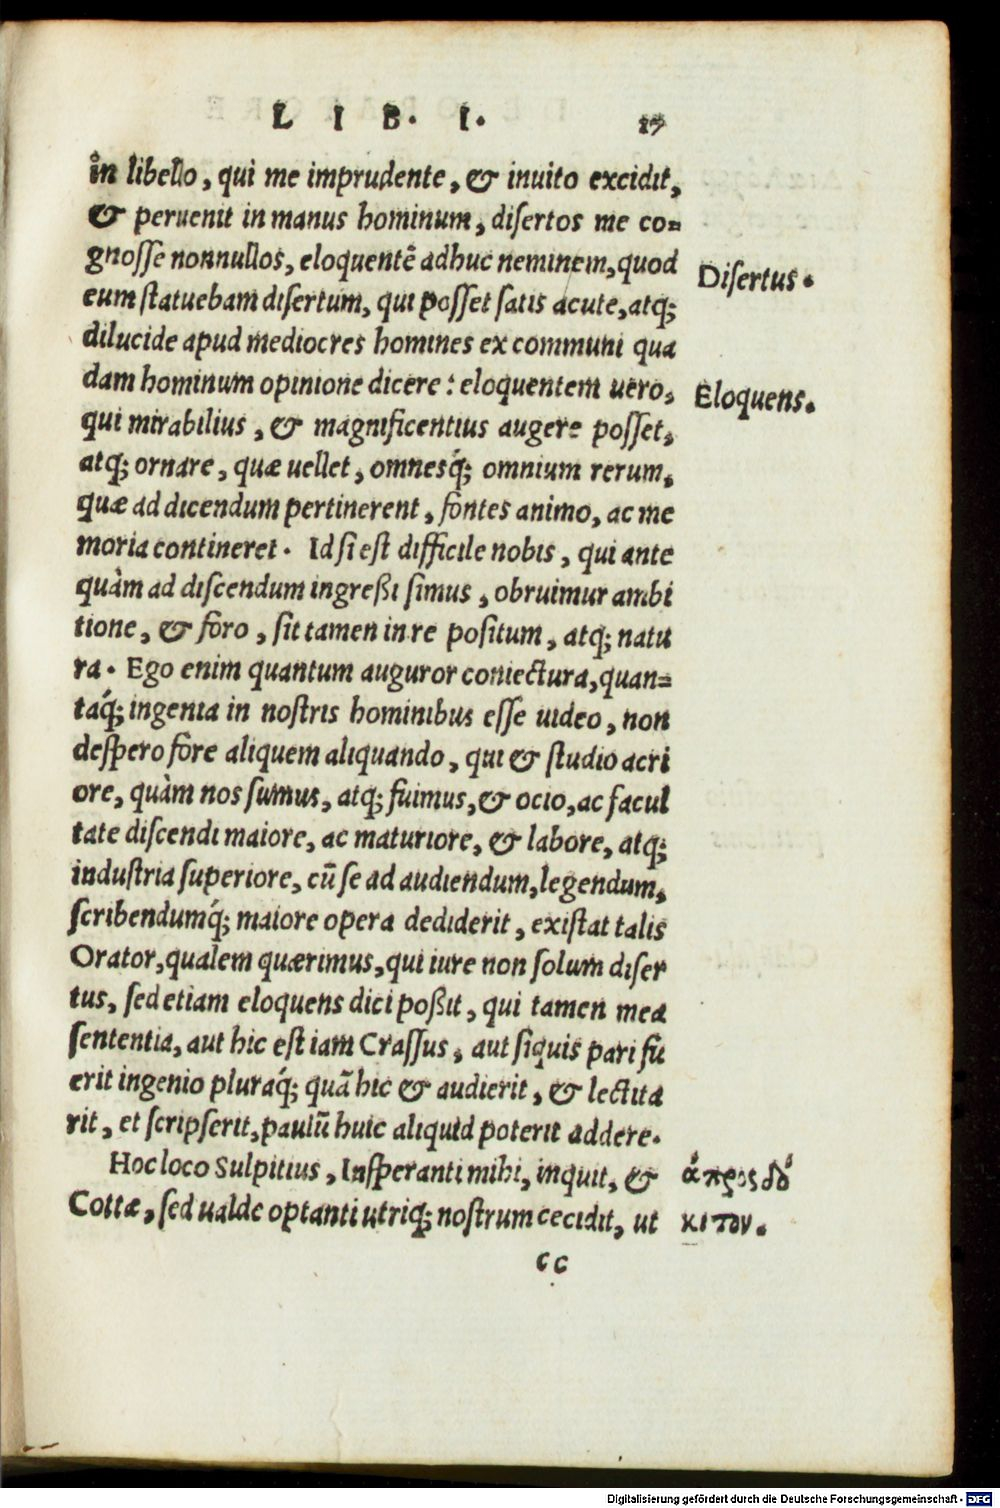 LIB. I. 17
in libello, qui me imprudente, & inuito excidit,
& peruenit in manus hominum, disertos me co-
gnosse nonnullos, eloquentē adhuc neminem, quod
Disertus.
eum statuebam disertum, qui posset satis acute, atq;
dilucide apud mediocres homines ex communi qua
dam hominum opinione dicere: eloquentem uero,
Eloquens.
qui mirabilius, & magnificentius augere posset,
atq; ornare, quæ uellet, omnesq́; omnium rerum,
quæ ad dicendum pertinerent, fontes animo, ac me
moria contineret. Id si est difficile nobis, qui ante
quàm ad discendum ingreßi simus, obruimur ambi
tione, & foro, sit tamen in re positum, atq; natu
ra. Ego enim quantum auguror coniectura, quan-
taq́; ingenia in nostris hominibus esse uideo, non
despero fore aliquem aliquando, qui & studio acri
ore, quàm nos sumus, atq; fuimus, & ocio, ac facul
tate discendi maiore, ac maturiore, & labore, atq;
industria superiore, cū se ad audiendum, legendum,
scribendumq́; maiore opera dediderit, existat talis
Orator, qualem quærimus, qui iure non solum diser
tus, sed etiam eloquens dici poßit, qui tamen mea
sententia, aut hic est iam Crassus, aut siquis pari fu
erit ingenio pluraq́; quā hic & audierit, & lectita
rit, et scripserit, paulū huic aliquid poterit addere.
Hoc loco Sulpitius, Insperanti mihi, inquit, &
ἀπροσδό
Cottæ, sed ualde optanti utriq; nostrum cecidit, ut
κιτον.
cc
Digitalisierung gefördert durch die Deutsche Forschungsgemeinschaft - DFG